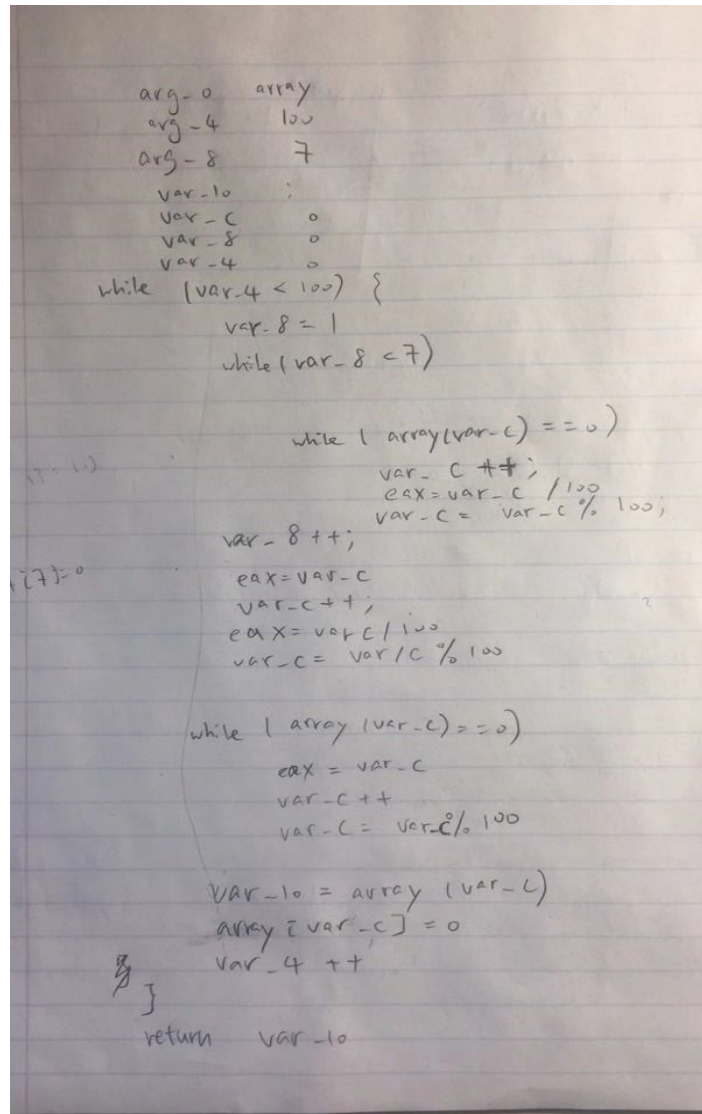 arg-0 array
arg-4 100
arg-8 7
var-10 ;
var-c 0
var-8 0
var-4 0
while (var-4 < 100) {
var-8 = 1
while (var-8 < 7)
while ( array(var-c) == 0)
var-c ++;
eax=var-c /100
var-c = var-c % 100;
var-8++;
[7]=0
eax=var-c
var-c++;
eax=varc/100
var-c= var/c % 100
while ( array (var-c)==0)
eax = var-c
var-c++
var-c= var-c% 100
var-10 = array (var-c)
array [var-c] = 0
var-4 ++
}
return var-10